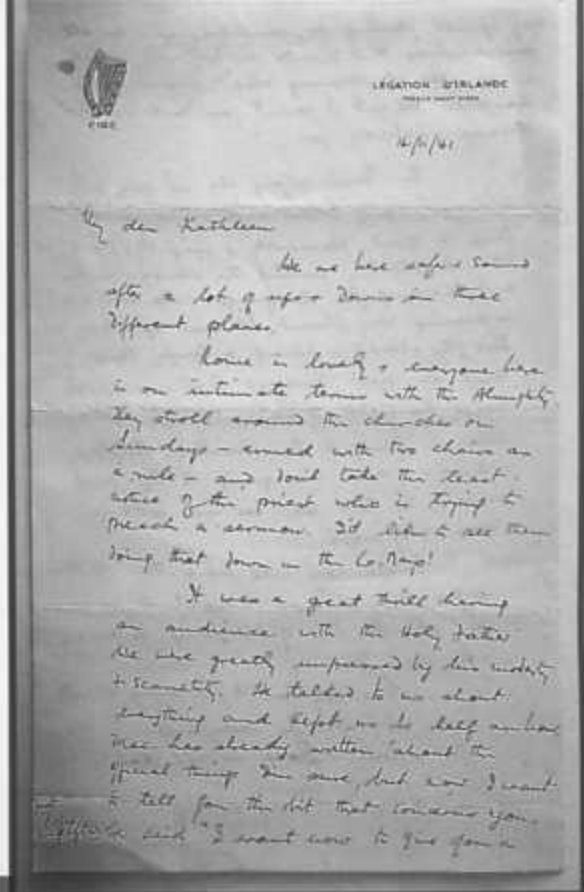 EIRE
LEGATION D'IRLANDE
My dear Kathleen
We are here safe & sound
after a lot of ups & Downs in three
Different planes.
Rome is lovely & everyone here
is on intimate terms with the Almighty.
They stroll around the churches on
Sundays – armed with two chairs as
a rule – and don't take the least
notice of the priest who is trying to
preach a sermon. I'd like to see them
doing that down in the Co. Mayo!
It was a great thrill having
an audience with the Holy Father
We were greatly impressed by his modesty
& Sanctity. He talked to us about
everything and kept us to half an hour
Mac has already written about the
official things I'm sure, but now I want
to tell you the bit that concerns you.
he said "I want now to give you a